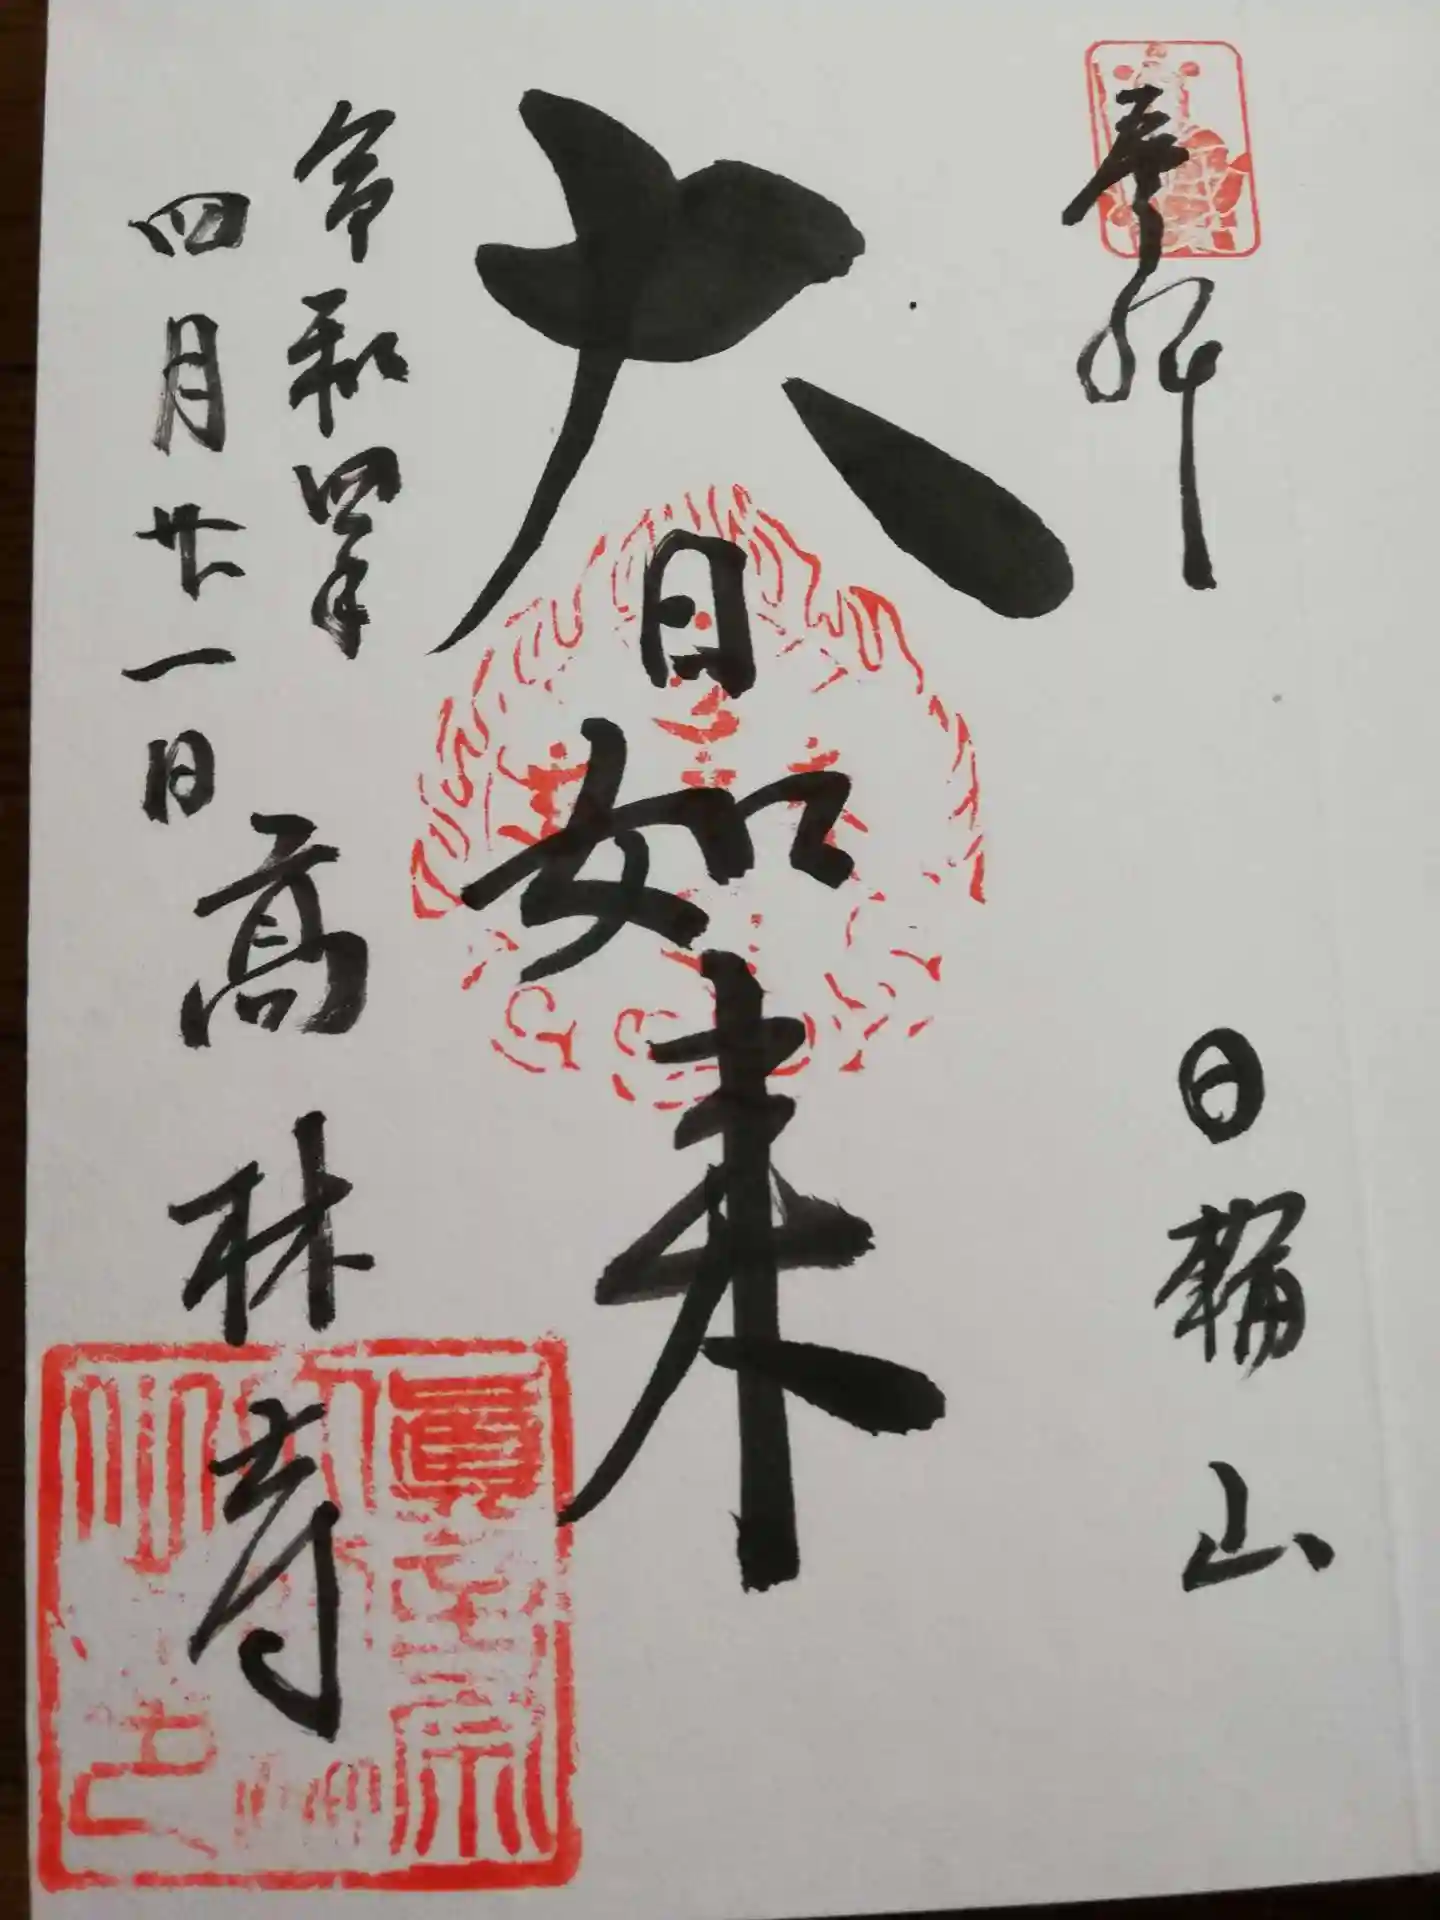 奉拝
日輪山
大日如来
令和四年
四月廿一日
高林寺